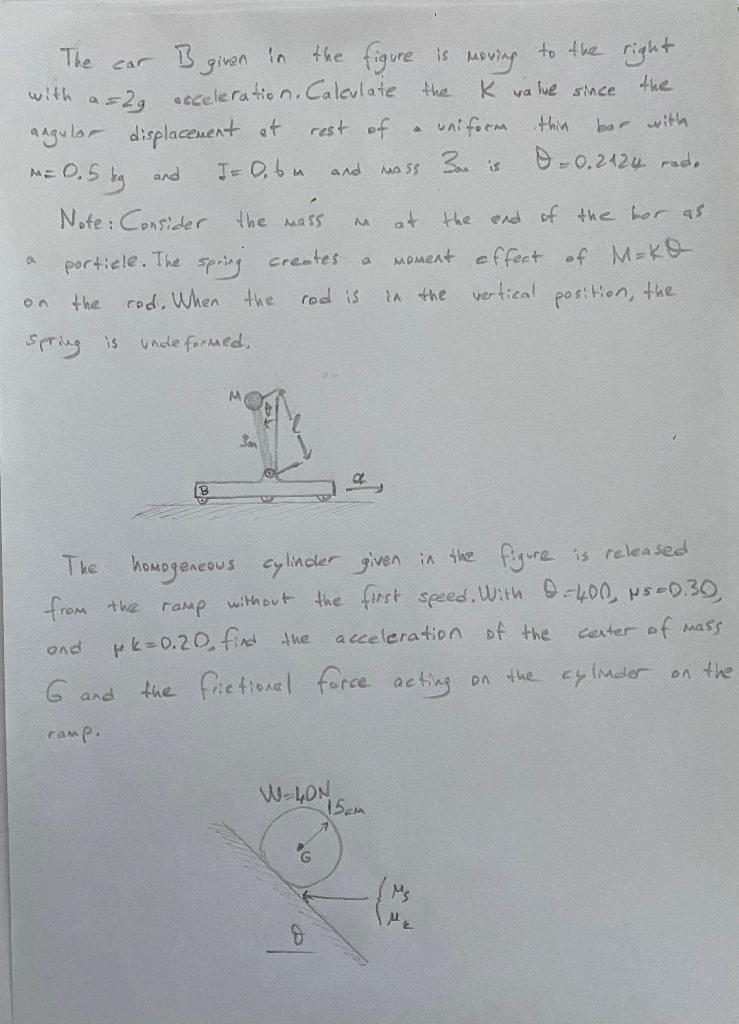 The car B given in the figure is moving to the right
with a=2g acceleration. Calculate the K value since the
angular displacement at rest of a uniform thin bar with
m=0.5 kg and J=0,6 m and mass 3m is θ=0.2124 rad.
Note: Consider the mass m at the end of the bar as
a particle. The spring creates a moment effect of M=Kθ
on the rod. When the rod is in the vertical position, the
spring is undeformed.
M
θ
l
3m
B
a
The homogeneous cylinder given in the figure is released
from the ramp without the first speed. With θ=400, μs=0.30,
and μk=0.20, find the acceleration of the center of mass
G and the frictional force acting on the cylinder on the
ramp.
W=40N
15cm
G
μs
μk
θ